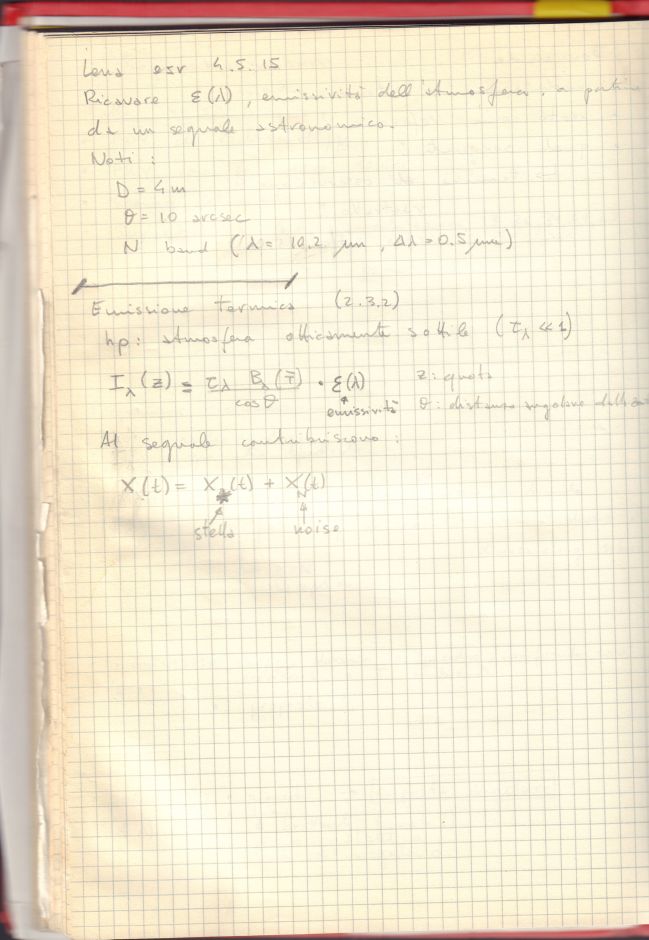 Lena esr 4.5.15
Ricavare ε(λ), emissività dell'atmosfera, a partire
da un segnale astronomico.
Noti:
D = 4 m
θ = 10 arcsec
N band (λ = 10.2 μm, Δλ = 0.5 μm)
Emissione termica (2.3.2)
hp: atmosfera otticamente sottile (τ_λ ≪ 1)
I_λ(z) = τ_λ B_λ(T̄)/cosθ · ε(λ) z: quota
emissività θ: distanza angolare dallo
Al segnale contribuiscono:
X(t) = X_*(t) + X_N(t)
stella noise